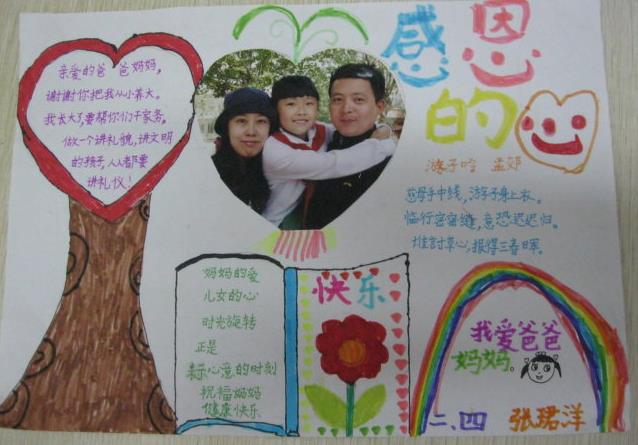 亲爱的爸爸妈妈,
谢谢你把我从小养大。
我长大了,要帮你们干家务,
做一个讲礼貌,讲文明
的孩子,人人都要
讲礼仪!
感恩
的
游子吟 孟郊
慈母手中线,游子身上衣。
临行密密缝,意恐迟迟归。
谁言寸草心,报得三春晖。
妈妈的爱
儿女的心
时光旋转
正是
表示心意的时刻
祝福妈妈
健康快乐
快乐
我爱爸爸
妈妈。
二、四 张珺洋